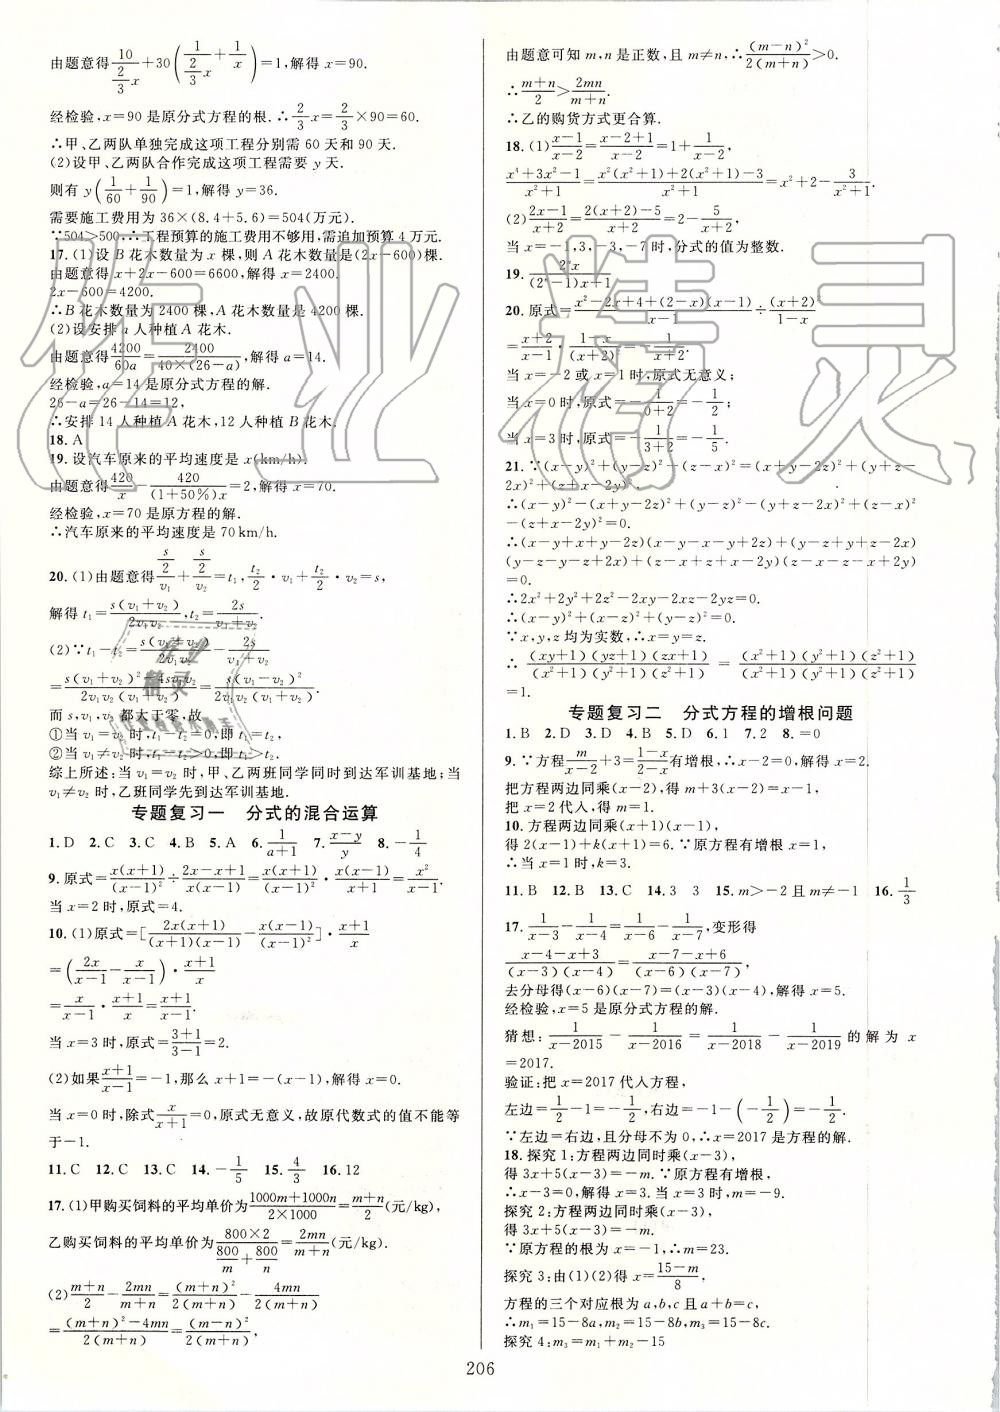 由题意得10/(2/3 x)+30(1/(2/3 x)+1/x)=1,解得 x=90.
经检验,x=90 是原分式方程的根.∴2/3 x=2/3×90=60.
∴甲、乙两队单独完成这项工程分别需 60 天和 90 天.
(2)设甲、乙两队合作完成这项工程需要 y 天.
则有 y(1/60+1/90)=1,解得 y=36.
需要施工费用为 36×(8.4+5.6)=504(万元).
∵504>500,∴工程预算的施工费用不够用,需追加预算 4 万元.
17.(1)设 B 花木数量为 x 棵,则 A 花木数量是(2x-600)棵.
由题意得 x+2x-600=6600,解得 x=2400.
2x-600=4200.
∴B 花木数量为 2400 棵,A 花木数量是 4200 棵.
(2)设安排 a 人种植 A 花木.
由题意得4200/60a=2400/(40×(26-a)),解得 a=14.
经检验,a=14 是原分式方程的解.
26-a=26-14=12,
∴安排 14 人种植 A 花木,12 人种植 B 花木.
18.A
19.设汽车原来的平均速度是 x(km/h).
由题意得420/x-420/((1+50%)x)=2,解得 x=70.
经检验,x=70 是原方程的解.
∴汽车原来的平均速度是 70 km/h.
20.(1)由题意得(s/2)/v₁+(s/2)/v₂=t₁,t₂/2·v₁+t₂/2·v₂=s,
解得 t₁=s(v₁+v₂)/2v₁v₂,t₂=2s/(v₁+v₂).
(2)∵t₁-t₂=s(v₁+v₂)/2v₁v₂-2s/(v₁+v₂)
=(s(v₁+v₂)²-4sv₁v₂)/(2v₁v₂(v₁+v₂))=s(v₁-v₂)²/(2v₁v₂(v₁+v₂)).
而 s,v₁,v₂ 都大于零,故
①当 v₁=v₂ 时,t₁-t₂=0,即 t₁=t₂,
②当 v₁≠v₂ 时,t₁-t₂>0,即 t₁>t₂.
综上所述:当 v₁=v₂ 时,甲、乙两班同学同时到达军训基地;当
v₁≠v₂ 时,乙班同学先到达军训基地.
专题复习一 分式的混合运算
1.D 2.C 3.C 4.B 5.A 6.1/(a+1) 7.(x-y)/y 8.-1/4
9.原式=x(x+1)/(x-1)²÷(2x-x+1)/(x(x-1))=x(x+1)/(x-1)²·x(x-1)/(x+1)=x²/(x-1).
当 x=2 时,原式=4.
10.(1)原式=[2x(x+1)/((x+1)(x-1))-x(x-1)/(x-1)²]·(x+1)/x
=(2x/(x-1)-x/(x-1))·(x+1)/x
=x/(x-1)·(x+1)/x=(x+1)/(x-1).
当 x=3 时,原式=(3+1)/(3-1)=2.
(2)如果(x+1)/(x-1)=-1,那么 x+1=-(x-1),解得 x=0.
当 x=0 时,除式x/(x+1)=0,原式无意义,故原代数式的值不能等
于-1.
11.C 12.C 13.C 14.-1/5 15.4/3 16.12
17.(1)甲购买饲料的平均单价为(1000m+1000n)/(2×1000)=(m+n)/2(元/kg),
乙购买饲料的平均单价为(800×2)/(800/m+800/n)=2mn/(m+n)(元/kg).
(2)(m+n)/2-2mn/(m+n)=(m+n)²/2(m+n)-4mn/2(m+n)
=((m+n)²-4mn)/2(m+n)=(m-n)²/2(m+n),
由题意可知 m,n 是正数,且 m≠n,∴(m-n)²/2(m+n)>0.
∴(m+n)/2>2mn/(m+n).
∴乙的购货方式更合算.
18.(1)(x-1)/(x-2)=(x-2+1)/(x-2)=1+1/(x-2),
(x⁴+3x²-1)/(x²+1)=(x²(x²+1)+2(x²+1)-3)/(x²+1)=x²+2-3/(x²+1).
(2)(2x-1)/(x+2)=(2(x+2)-5)/(x+2)=2-5/(x+2),
当 x=-1,3,-3,-7 时,分式的值为整数.
19.2ⁿx/((2ⁿ-1)x+1)
20.原式=(x²-2x+4+(2-x)(x-1))/(x-1)÷(x+2)²/(1-x)
=(x+2)/(x-1)·(1-x)/(x+2)²=-1/(x+2).
当 x=-2 或 x=1 时,原式无意义;
当 x=0 时,原式=-1/(0+2)=-1/2;
当 x=3 时,原式=-1/(3+2)=-1/5.
21.∵(x-y)²+(y-z)²+(z-x)²=(x+y-2z)²+(y+z-
2x)²+(z+x-2y)².
∴(x-y)²-(x+y-2z)²+(y-z)²-(y+z-2x)²+(z-x)²
-(z+x-2y)²=0.
∴(x-y+x+y-2z)(x-y-x-y+2z)+(y-z+y+z-2x)
(y-z-y-z+2x)+(z-x+z+x-2y)(z-x-z-x+2y)
=0.
∴2x²+2y²+2z²-2xy-2xz-2yz=0.
∴(x-y)²+(x-z)²+(y-z)²=0.
∵x,y,z 均为实数,∴x=y=z.
∴(xy+1)(yz+1)(zx+1)/((x²+1)(y²+1)(z²+1))=(x²+1)(y²+1)(z²+1)/((x²+1)(y²+1)(z²+1))
=1.
专题复习二 分式方程的增根问题
1.B 2.D 3.D 4.B 5.D 6.1 7.2 8.=0
9.∵方程m/(x-2)+3=(1-x)/(2-x)有增根,∴x-2=0,解得 x=2.
把方程两边同乘(x-2),得 m+3(x-2)=x-1.
把 x=2 代入,得 m=1.
10.方程两边同乘(x+1)(x-1),
得 2(x-1)+k(x+1)=6.∵原方程有增根 x=1,
∴当 x=1 时,k=3.
11.B 12.B 13.C 14.3 3 15.m>-2 且 m≠-1 16.1/3
17.1/(x-3)-1/(x-4)=1/(x-6)-1/(x-7),变形得
(x-4-x+3)/((x-3)(x-4))=(x-7-x+6)/((x-6)(x-7)).
去分母得(x-6)(x-7)=(x-3)(x-4),解得 x=5.
经检验,x=5 是原分式方程的解.
猜想:1/(x-2015)-1/(x-2016)=1/(x-2018)-1/(x-2019)的解为 x
=2017.
验证:把 x=2017 代入方程,
左边=1/2-1=-1/2,右边=-1-(-1/2)=-1/2.
∵左边=右边,且分母不为 0,∴x=2017 是方程的解.
18.探究 1:方程两边同时乘(x-3),
得 3x+5(x-3)=-m.∵原方程有增根,
∴x-3=0,解得 x=3.当 x=3 时,m=-9.
探究 2:方程两边同时乘(x-3),
得 3x+5(x-3)=-m.
∵原方程的根为 x=-1,∴m=23.
探究 3:由(1)(2)得 x=(15-m)/8,
方程的三个对应根为 a,b,c 且 a+b=c,
∴m₁=15-8a,m₂=15-8b,m₃=15-8c.
探究 4:m₃=m₁+m₂-15
206
作业精灵